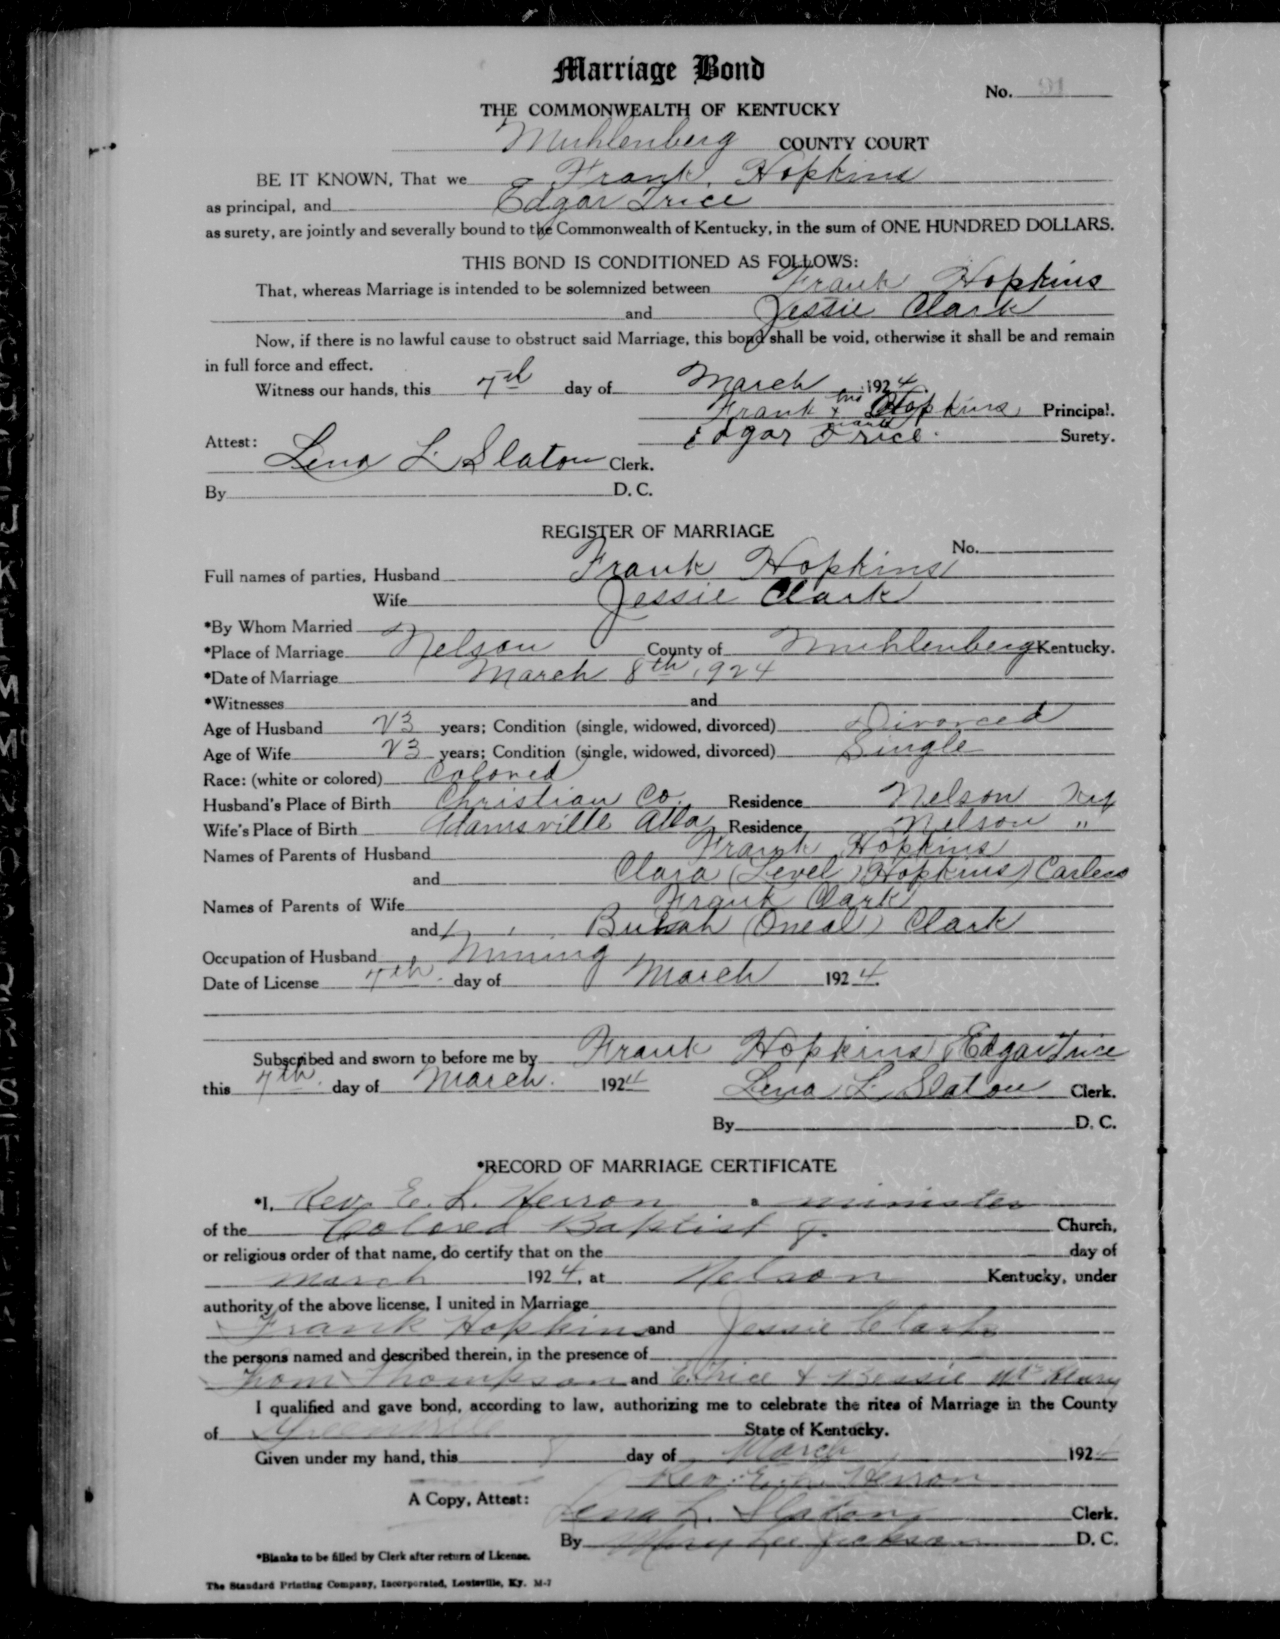 Marriage Bond
No.
THE COMMONWEALTH OF KENTUCKY
Muhlenberg COUNTY COURT
BE IT KNOWN, That we Frank Hopkins
as principal, and Edgar Trice
as surety, are jointly and severally bound to the Commonwealth of Kentucky, in the sum of ONE HUNDRED DOLLARS.
THIS BOND IS CONDITIONED AS FOLLOWS:
That, whereas Marriage is intended to be solemnized between Frank Hopkins
and Jessie Clark
Now, if there is no lawful cause to obstruct said Marriage, this bond shall be void, otherwise it shall be and remain
in full force and effect.
Witness our hands, this 7th day of March 1924.
Frank his x mark Hopkins, Principal.
Edgar Trice. Surety.
Attest: Lena L. Slaton Clerk.
By D. C.
REGISTER OF MARRIAGE
No.
Full names of parties, Husband Frank Hopkins
Wife Jessie Clark
*By Whom Married
*Place of Marriage Nelson County of Muhlenberg Kentucky.
*Date of Marriage March 8th, 1924
*Witnesses and
Age of Husband 23 years; Condition (single, widowed, divorced) Divorced
Age of Wife 23 years; Condition (single, widowed, divorced) Single
Race: (white or colored) Colored
Husband's Place of Birth Christian Co. Residence Nelson Ky
Wife's Place of Birth Adamsville Alla Residence Nelson "
Names of Parents of Husband Frank Hopkins
and Clara (Level) (Hopkins)
Names of Parents of Wife Frank Clark
and (Oneal) Clark
Occupation of Husband Mining
Date of License 7th. day of March 1924.
Subscribed and sworn to before me by Frank Hopkins Edgar Trice
this 7th. day of March. 1924 Lena L. Slaton Clerk.
By D. C.
*RECORD OF MARRIAGE CERTIFICATE
*I, Rev. E. L. Herron a minister
of the Colored Baptist Church,
or religious order of that name, do certify that on the day of
March 1924, at Nelson Kentucky, under
authority of the above license, I united in Marriage
Frank Hopkins and Jessie Clark
the persons named and described therein, in the presence of
Thom Thompson and E. Trice & Bessie
I qualified and gave bond, according to law, authorizing me to celebrate the rites of Marriage in the County
of Greenville State of Kentucky.
Given under my hand, this 8 day of March 1924
Rev. E. L. Herron
A Copy, Attest: Lena L. Slaton Clerk.
By Mary Lee Jackson D. C.
*Blanks to be filled by Clerk after return of License.
The Standard Printing Company, Incorporated, Louisville, Ky. M-7